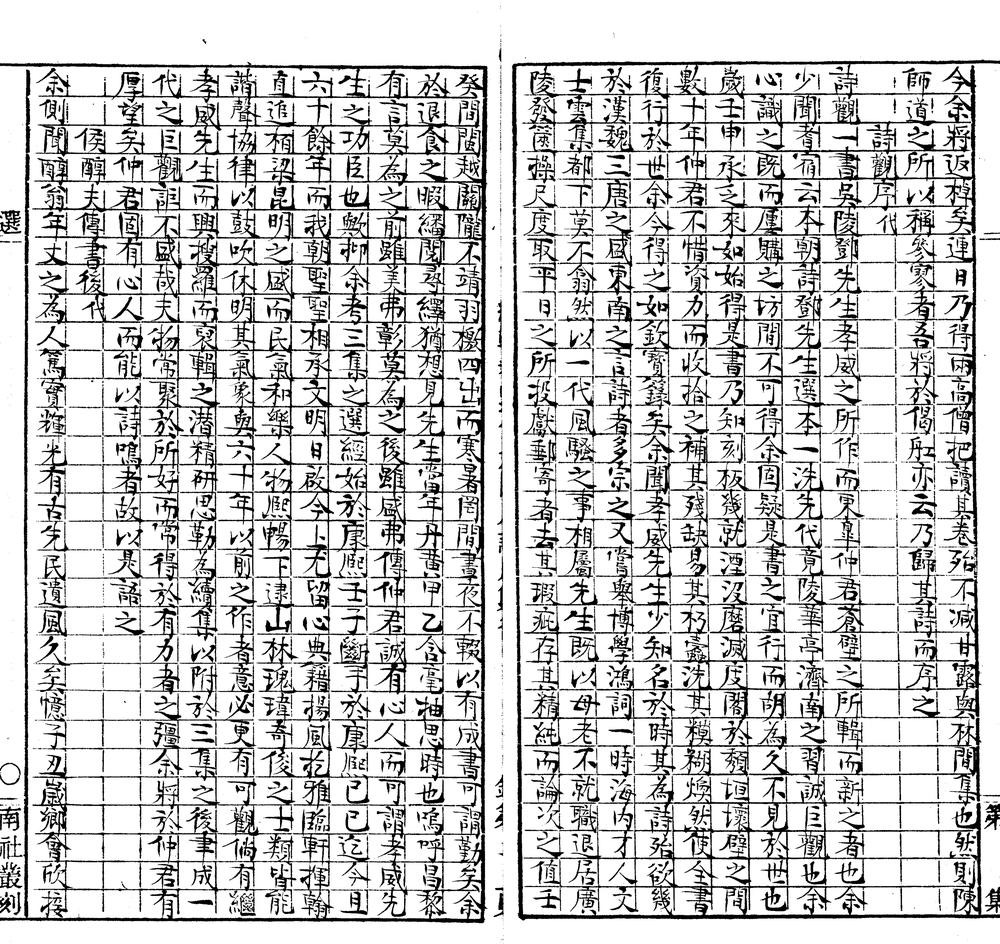 今余將返棹矣連日乃得兩高僧把讀其卷殆不減甘露與林間集也然則陳
師道之所以稱參寥者吾將於偈缸亦云乃歸其詩而序之
詩觀序代
詩觀一書吳陵鄧先生孝威之所作而東皐仲君蒼璧之所輯而新之者也余
少聞耆宿云本朝詩鄧先生選本一洗先代竟陵華亭濟南之習誠巨觀也余
心識之既而屢購之坊間不可得余固疑是書之宜行而胡為久不見於世也
歲壬申承乏來如始得是書乃知刻板幾就湮沒磨滅庋閣於頹垣壞壁之間
數十年仲君不惜資力而收拾之補其殘缺易其朽蠹洗其糢糊煥然使全書
復行於世余今得之如欽寶籙矣余聞孝威先生少知名於時其為詩殆欲幾
於漢魏三唐之盛東南之言詩者多宗之又嘗舉博學鴻詞一時海內才人文
士雲集都下莫不翕然以一代風騷之事相屬先生既以母老不就職退居廣
陵發篋操尺度取平日之所投獻郵寄者去其瑕疵存其精純而論次之值壬
癸間閩越關隴不靖羽檄四出而寒暑罔間晝夜不輟以有成書可謂勤矣余
於退食之暇繙閱尋繹猶想見先生當年丹黃甲乙含毫抽思時也嗚呼昌黎
有言莫為之前雖美弗彰莫為之後雖盛弗傳仲君誠有心人而可謂孝威先
生之功臣也歟抑余考三集之選經始於康熙壬子斷手於康熙己巳迄今且
六十餘年而我朝聖聖相承文明日啟今上尤留心典籍揚風扢雅臨軒揮翰
直追栢梁昆明之盛而民氣和樂人物熙暢下逮山林瑰瑋奇俊之士類皆能
諧聲協律以鼓吹休明其氣象與六十年以前之作者意必更有可觀倘有繼
孝威先生而興搜羅而裒輯之潛精研思勒為續集以附於三集之後書成一
代之巨觀詎不盛哉夫物常聚於所好而常得於有力者之彊余將於仲君有
厚望矣仲君固有心人而能以詩鳴者故以是諗之
侯醇夫傳書後代
余側聞醇翁年丈之為人篤實輝光有古先民遺風久矣憶子丑歲鄉會欣接
選
○南社叢刻
集